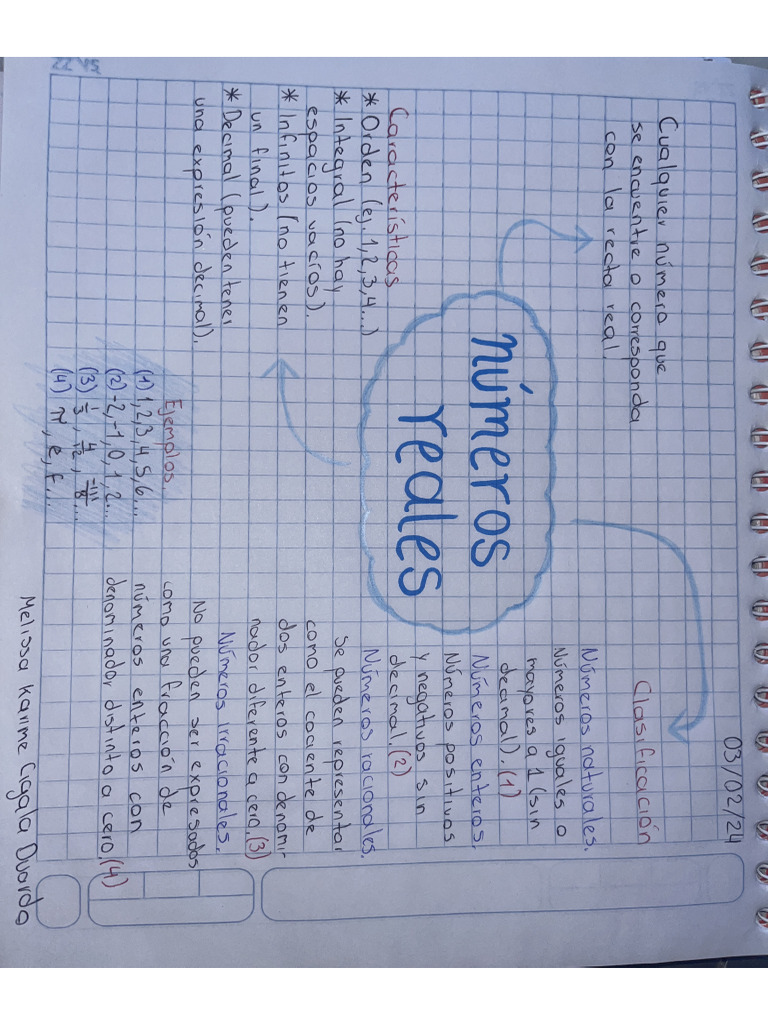 03/02/24
Cualquier número que
se encuentre o corresponda
con la recta real.
números
reales
Características
* Orden (ej. 1, 2, 3, 4...)
* Integral (no hay
espacios vacíos).
* Infinitos (no tienen
un final).
* Decimal (pueden tener
una expresión decimal).
Clasificación
Números naturales.
Números iguales o
mayores a 1 (sin
decimal). (1)
Números enteros.
Números positivos
y negativos sin
decimal. (2)
Números racionales.
Se pueden representar
como el cociente de
dos enteros con denomi-
nador diferente a cero. (3)
Números irracionales.
No pueden ser expresados
como una fracción de
números enteros con
denominador distinto a cero. (4)
Ejemplos
(1) 1, 2, 3, 4, 5, 6...
(2) -2, -1, 0, 1, 2...
(3)
(4)
Melissa Karime Cigala Duarda